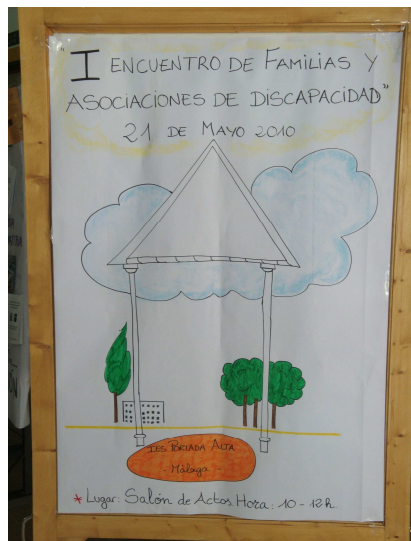 "I ENCUENTRO DE FAMILIAS Y
ASOCIACIONES DE DISCAPACIDAD"
21 DE MAYO 2010
IES PORTADA ALTA
- Málaga -
* Lugar: Salón de Actos. Hora: 10-12h